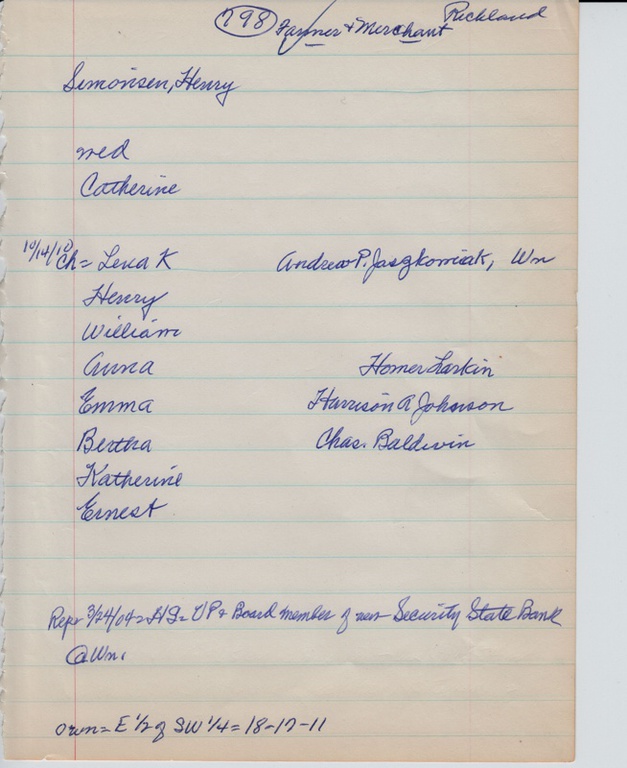 798 Farmer & Merchant Richland
Simonsen, Henry
med
Catherine
10/14/10 Ch = Lena K Andrew P. Jaszkowiak, Wn
Henry
William
Anna Homer Larkin
Emma Harrison A Johnson
Bertha Chas. Baldwin
Katherine
Ernest
Rep= 3/24/04= HS= VP & Board member of new Security State Bank
@ Wn.
own = E 1/2 of SW 1/4 = 18-17-11